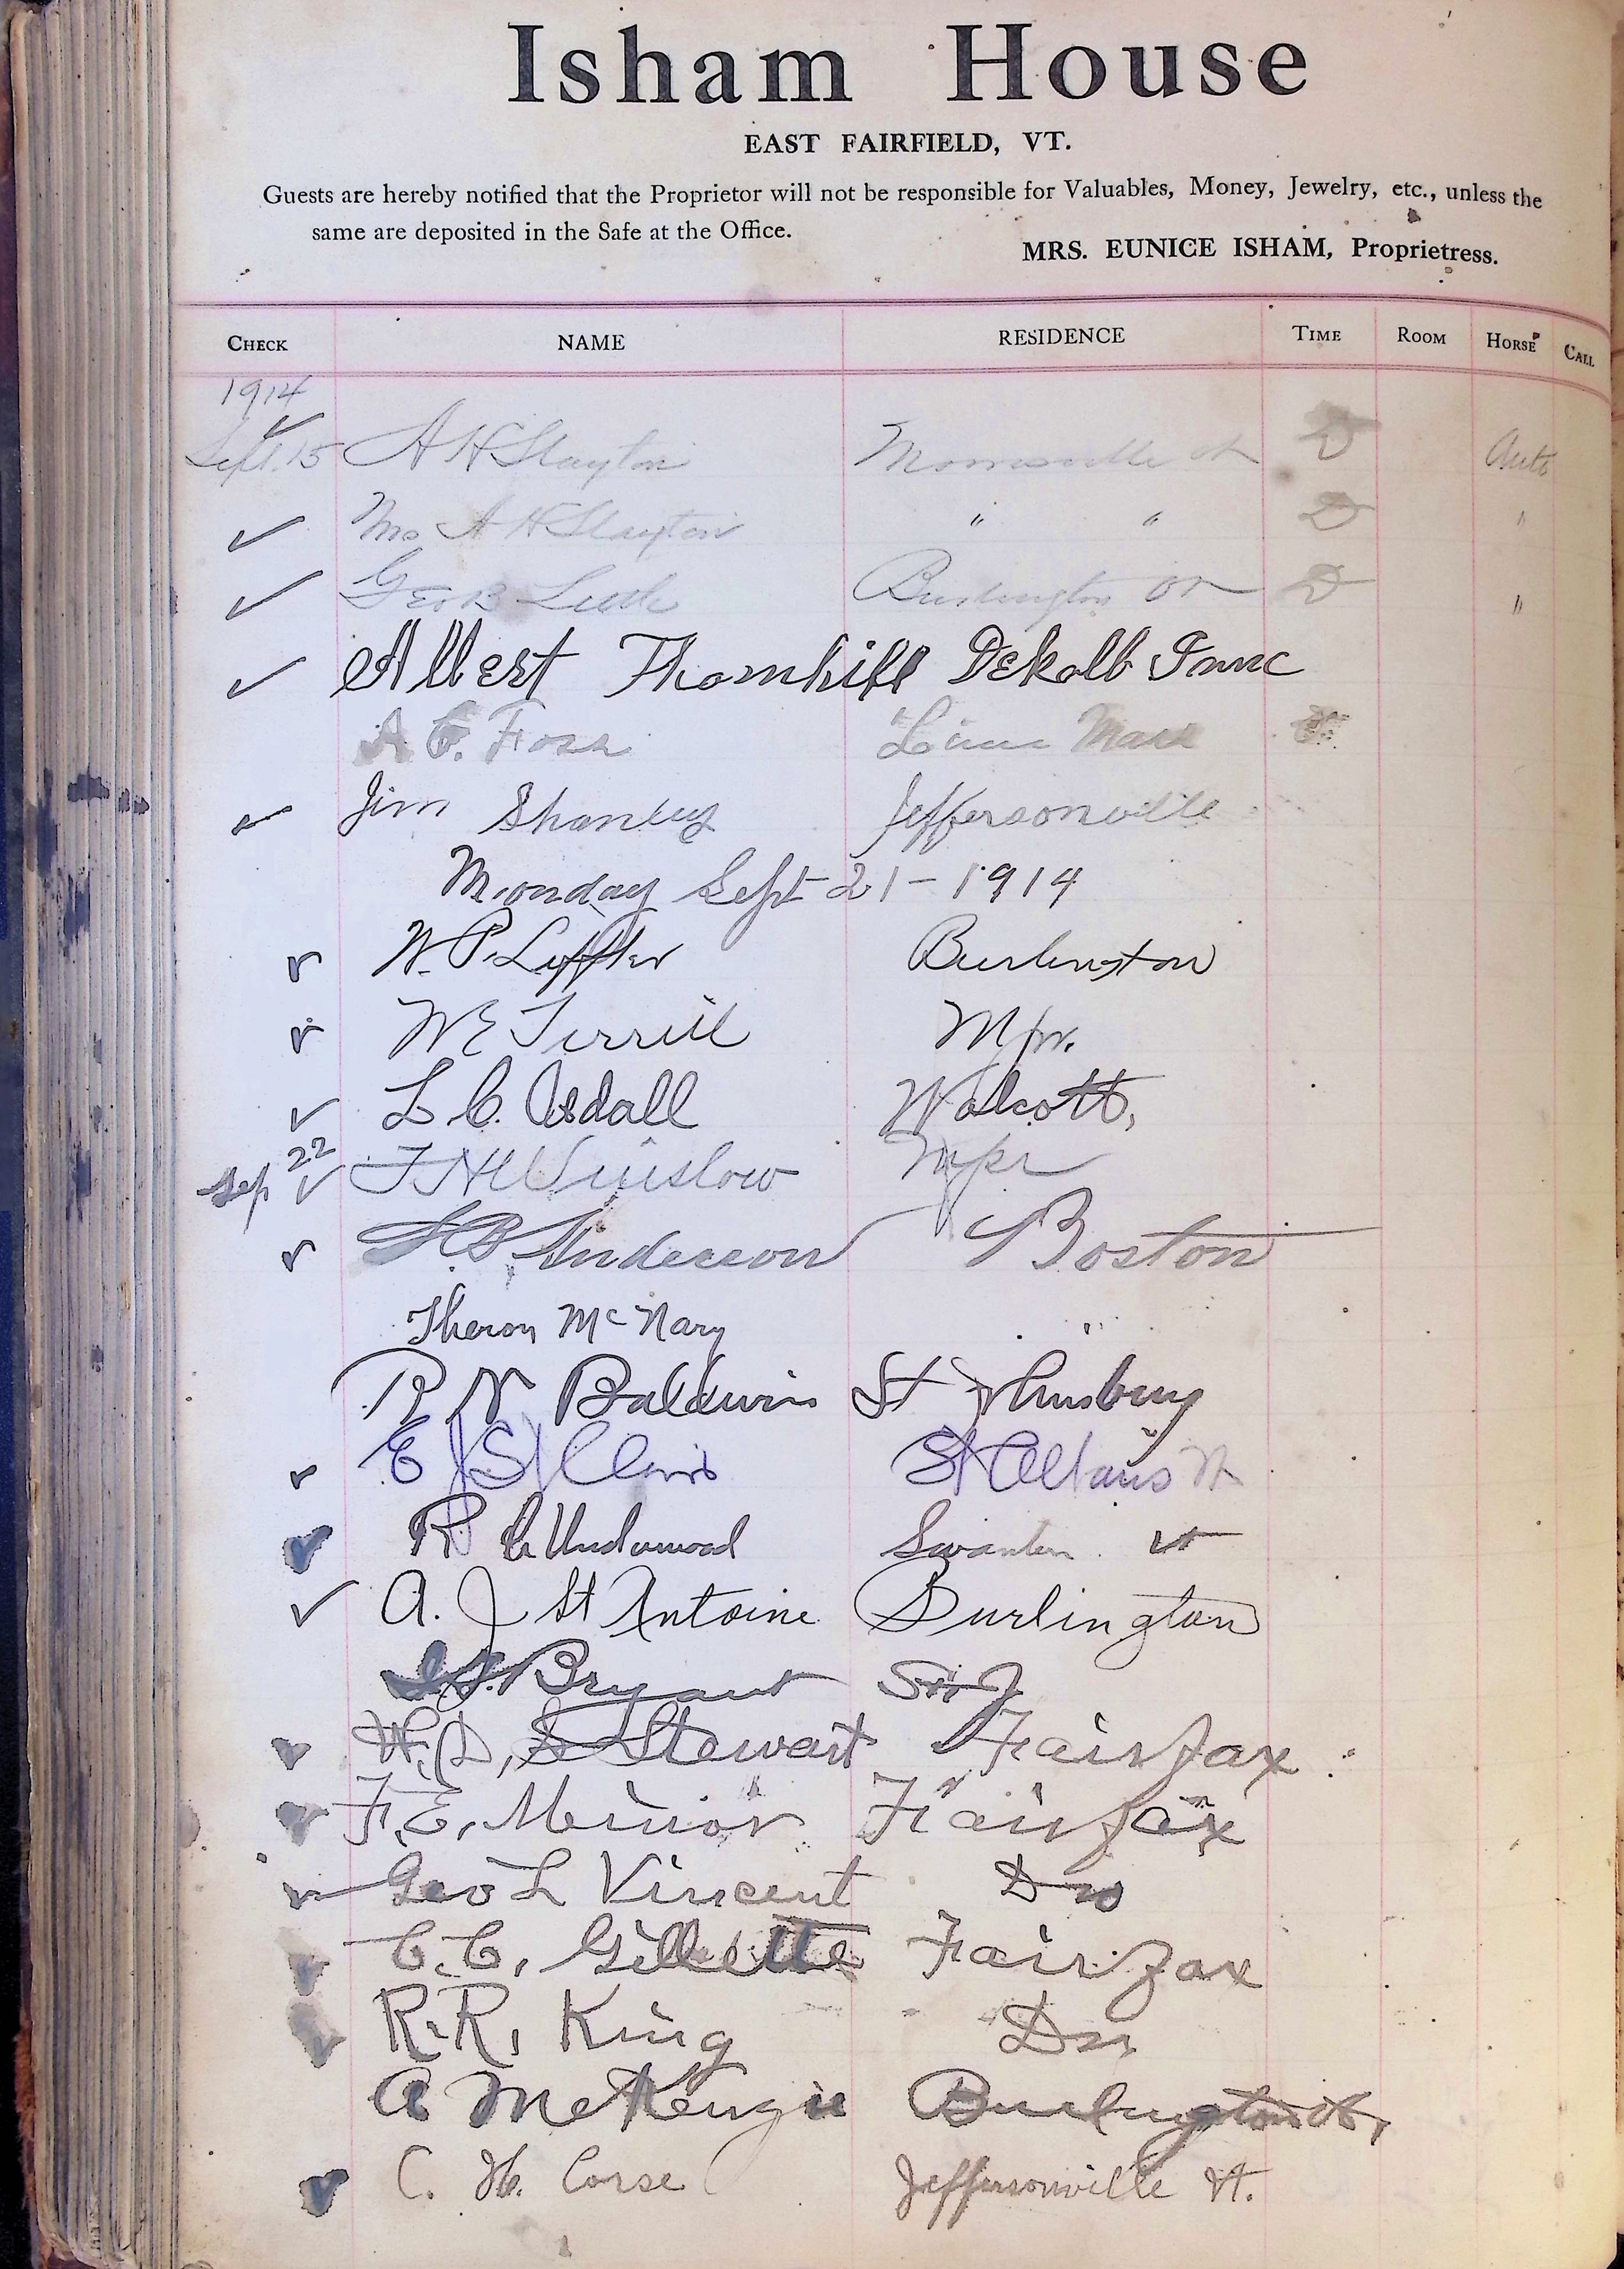 Isham House
EAST FAIRFIELD, VT.
Guests are hereby notified that the Proprietor will not be responsible for Valuables, Money, Jewelry, etc., unless the
same are deposited in the Safe at the Office.
MRS. EUNICE ISHAM, Proprietress.
CHECK NAME RESIDENCE TIME ROOM HORSE CALL
1914
Sept. 15 A H Slayton Morrisville Vt D Auto
Mrs A H Slayton " " D "
Geo B Burlington Vt D "
Albert Thornhill Dekalb
A Foss Mass
Jim Jeffersonville
Monday Sept 21 - 1914
W. P. Burlington
W E Terrill Mpr.
L C. Wolcott,
Sep 22 F H Winslow Mpr
Anderson Boston
Theron McNary "
R N Baldwin St Johnsbury
E S St Albans Vt
R C Underwood Swanton Vt
A. J St Antoine Burlington
Bryant St J
W. D, Stewart Fairfax
F. E, Minor Fairfax
Geo L Vincent Do
C. C, Gillette Fairfax
R. R, King Do
A McKenzie Burlington Vt,
C. H. Corse Jeffersonville Vt.